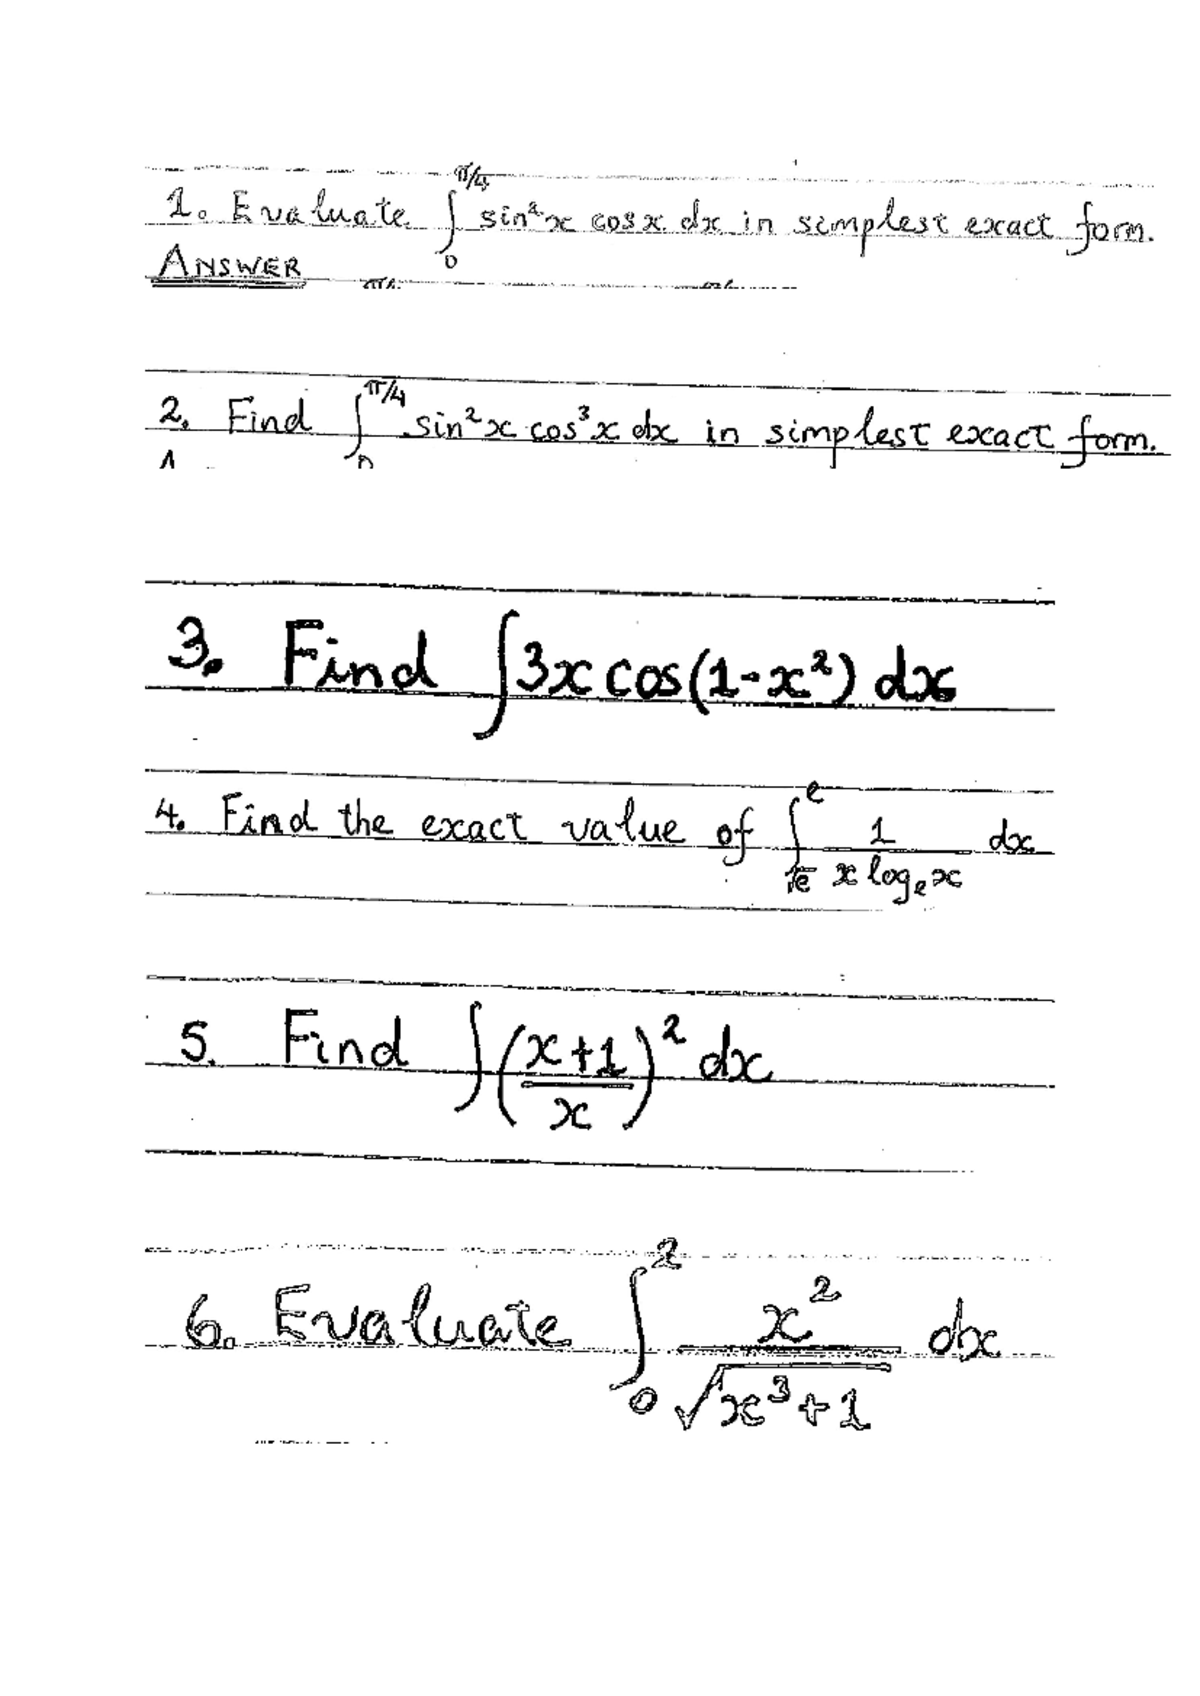 1. Evaluate ∫₀^(π/4) sin²x cosx dx in simplest exact form.
ANSWER
2. Find ∫₀^(π/4) sin²x cos³x dx in simplest exact form.
3. Find ∫3x cos(1-x²) dx
4. Find the exact value of ∫_(√e)^e 1/(x logₑx) dx
5. Find ∫((x+1)/x)² dx
6. Evaluate ∫₀² x²/√(x³+1) dx